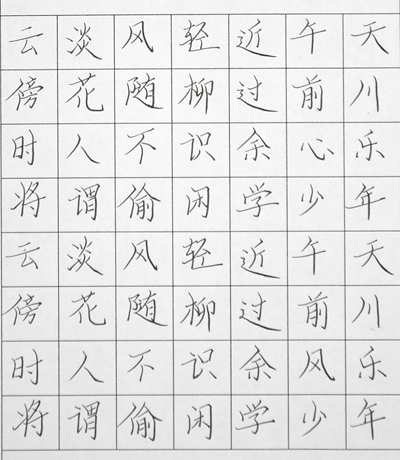 云淡风轻近午天
傍花随柳过前川
时人不识余心乐
将谓偷闲学少年
云淡风轻近午天
傍花随柳过前川
时人不识余风乐
将谓偷闲学少年